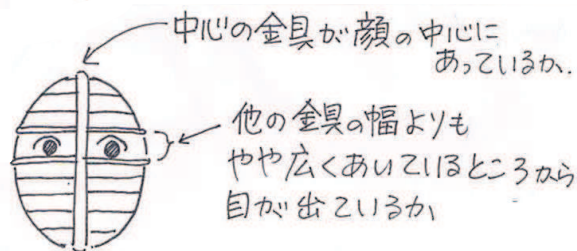 中心の金具が顔の中心に
あっているか、
他の金具の幅よりも
やや広くあいているところから
目が出ているか、